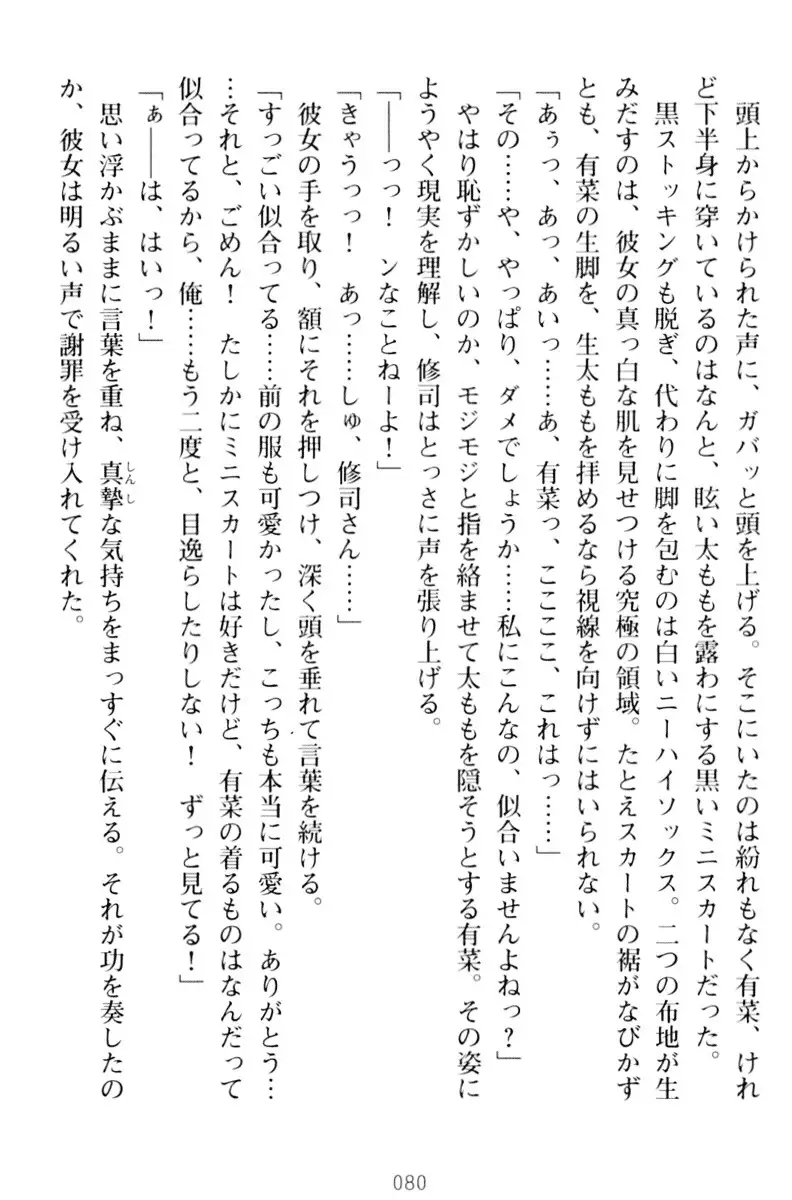 頭上からかけられた声に、ガバッと頭を上げる。そこにいたのは紛れもなく有菜、けれ
ど下半身に穿いているのはなんと、眩い太ももを露わにする黒いミニスカートだった。
黒ストッキングも脱ぎ、代わりに脚を包むのは白いニーハイソックス。二つの布地が生
みだすのは、彼女の真っ白な肌を見せつける究極の領域。たとえスカートの裾がなびかず
とも、有菜の生脚を、生太ももを拝めるなら視線を向けずにはいられない。
「あぅっ、あっ、あいっ……あ、有菜っ、ここここ、これはっ……」
「その……や、やっぱり、ダメでしょうか……私にこんなの、似合いませんよねっ？」
やはり恥ずかしいのか、モジモジと指を絡ませて太ももを隠そうとする有菜。その姿に
ようやく現実を理解し、修司はとっさに声を張り上げる。
「――っっ！　ンなことねーよ！」
「きゃうっっ！　あっ……しゅ、修司さん……」
彼女の手を取り、額にそれを押しつけ、深く頭を垂れて言葉を続ける。
「すっごい似合ってる……前の服も可愛かったし、こっちも本当に可愛い。ありがとう…
…それと、ごめん！　たしかにミニスカートは好きだけど、有菜の着るものはなんだって
似合ってるから、俺……もう二度と、目逸らしたりしない！　ずっと見てる！」
「ぁ――は、はいっ！」
思い浮かぶままに言葉を重ね、真摯しんしな気持ちをまっすぐに伝える。それが功を奏したの
か、彼女は明るい声で謝罪を受け入れてくれた。
080